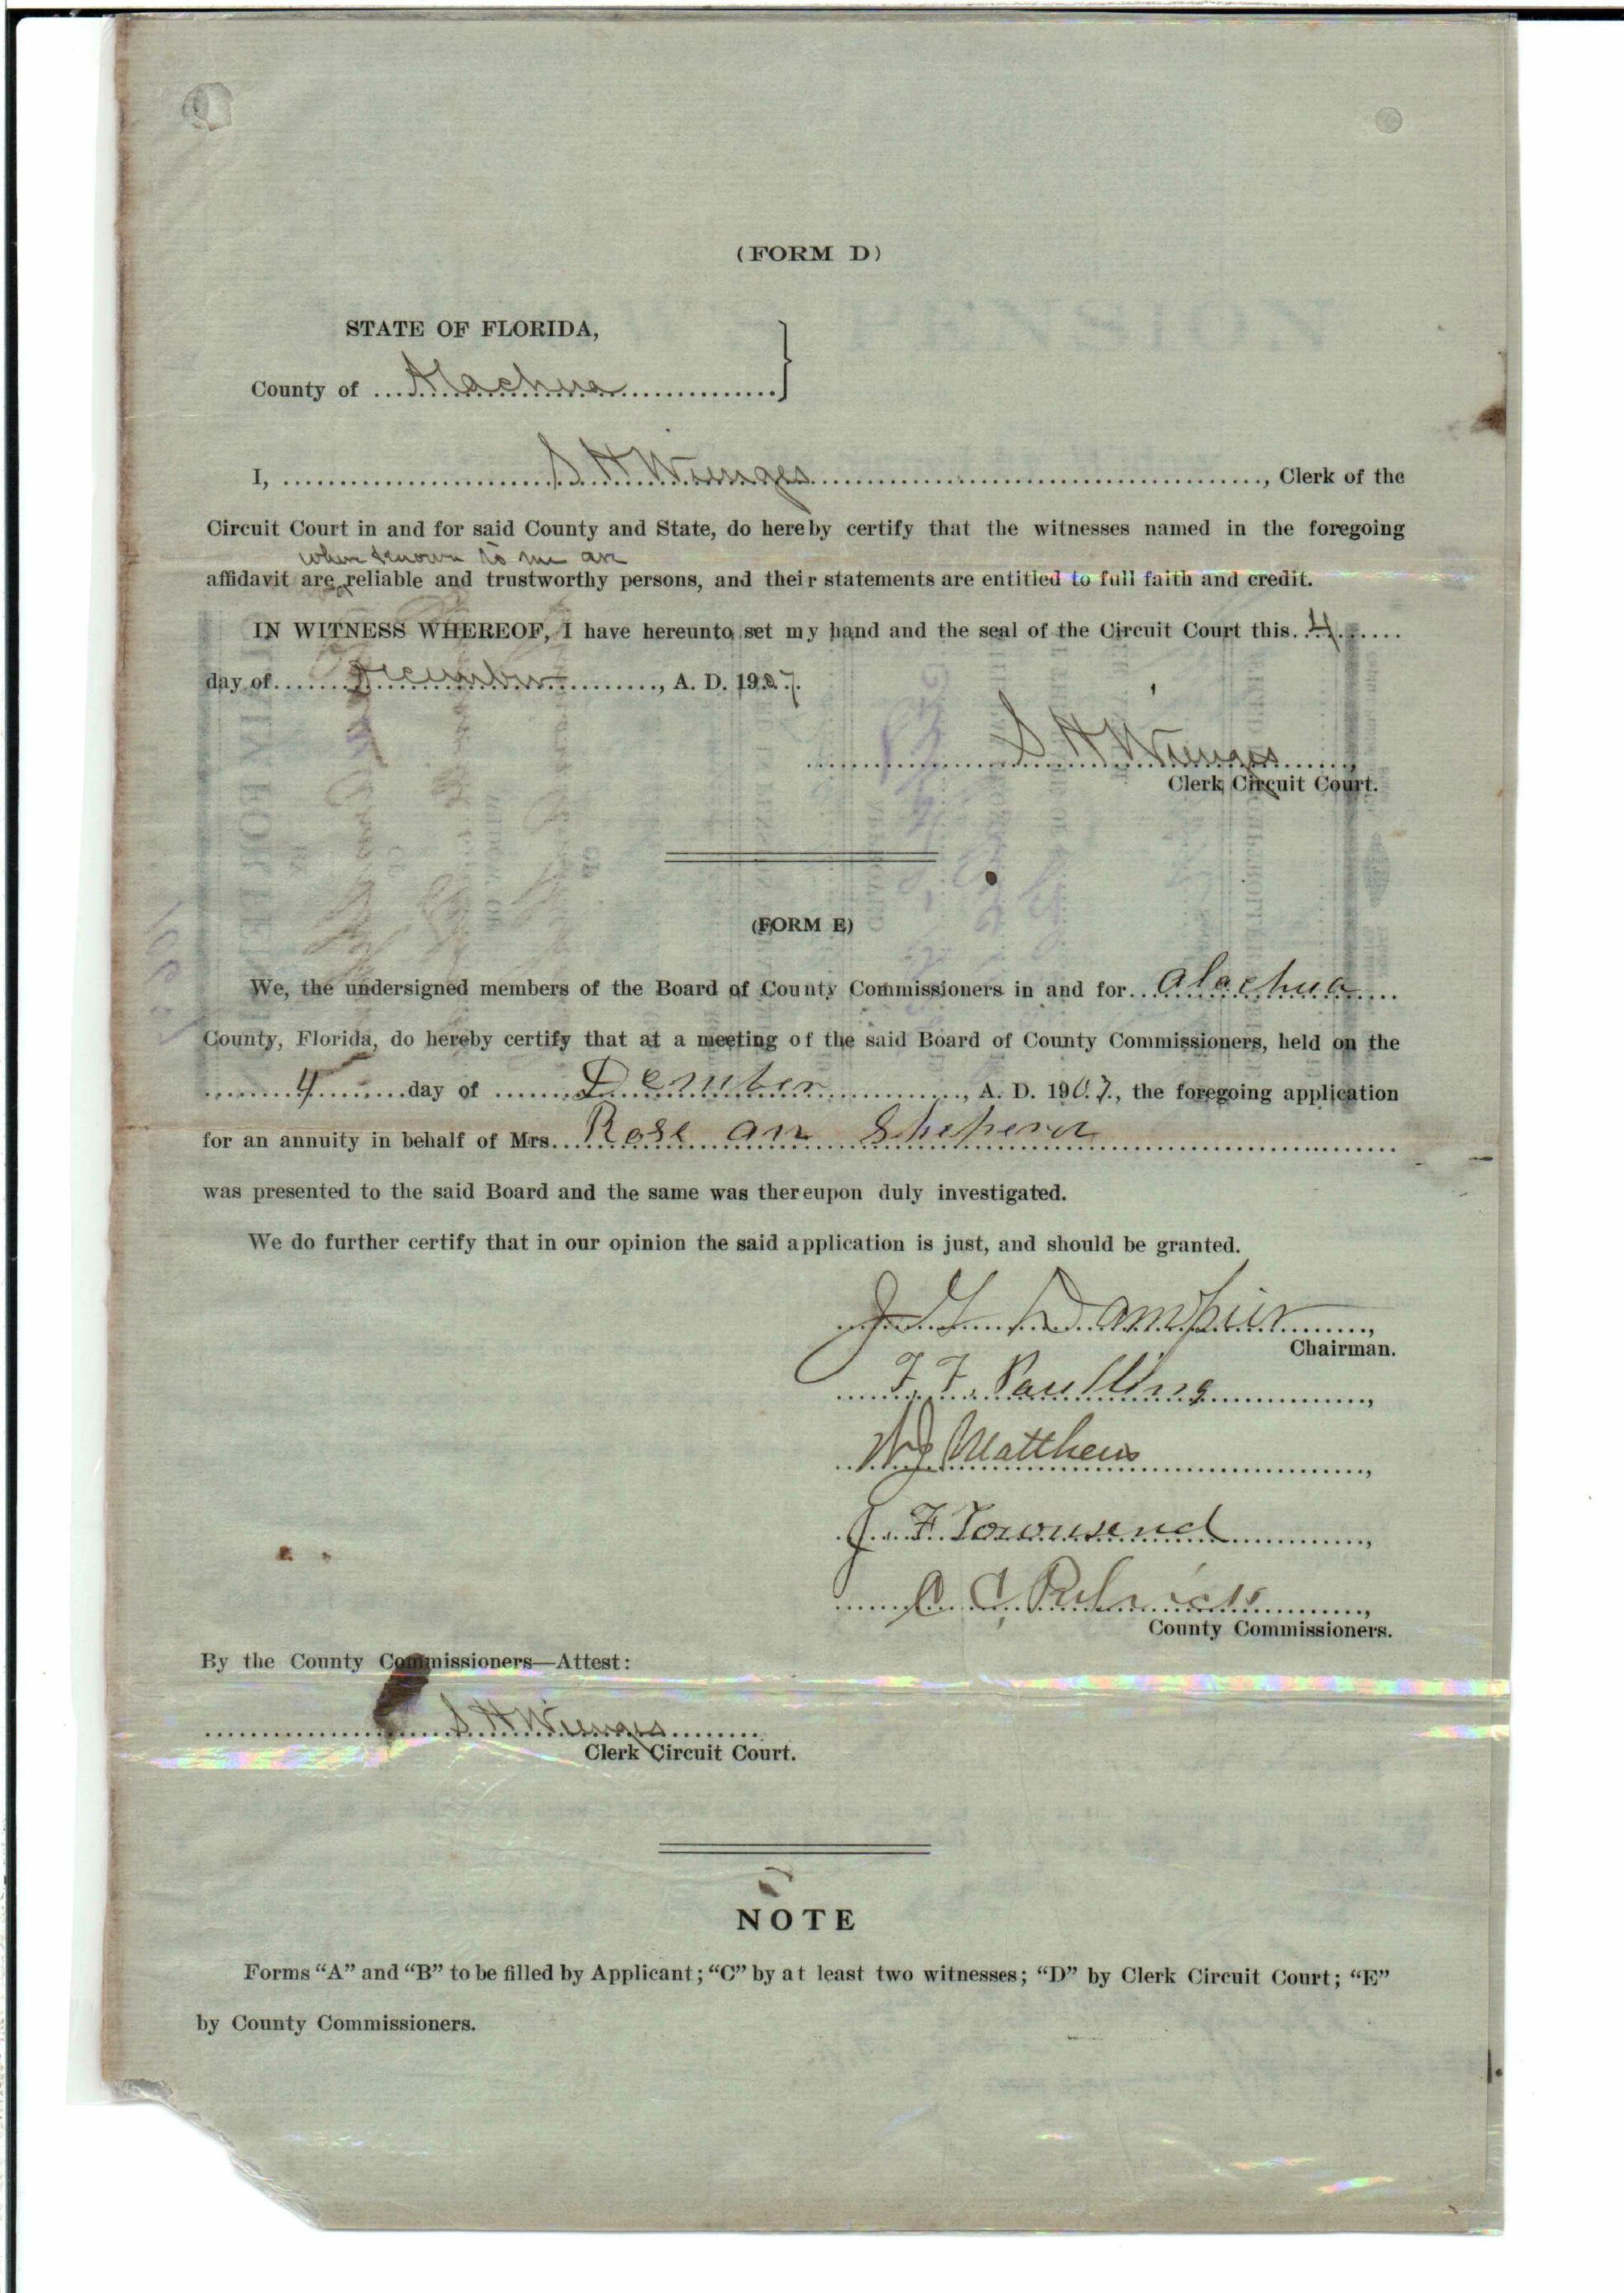 (FORM D)
STATE OF FLORIDA,
County of Alachua
I, S H Wienges, Clerk of the
Circuit Court in and for said County and State, do hereby certify that the witnesses named in the foregoing
when known to me are
affidavit are reliable and trustworthy persons, and their statements are entitled to full faith and credit.
IN WITNESS WHEREOF, I have hereunto set my hand and the seal of the Circuit Court this 4
day of December, A. D. 1907.
S H Wienges,
Clerk Circuit Court.
(FORM E)
We, the undersigned members of the Board of County Commissioners in and for Alachua
County, Florida, do hereby certify that at a meeting of the said Board of County Commissioners, held on the
4 day of Dember, A. D. 1907, the foregoing application
for an annuity in behalf of Mrs. Rose an Sheperd
was presented to the said Board and the same was thereupon duly investigated.
We do further certify that in our opinion the said application is just, and should be granted.
J G Dampier,
Chairman.
F. F. Paulling,
W J Matthews,
J. F. Townsend,
C. C.
County Commissioners.
By the County Commissioners—Attest:
S H Wienges
Clerk Circuit Court.
NOTE
Forms "A" and "B" to be filled by Applicant; "C" by at least two witnesses; "D" by Clerk Circuit Court; "E"
by County Commissioners.